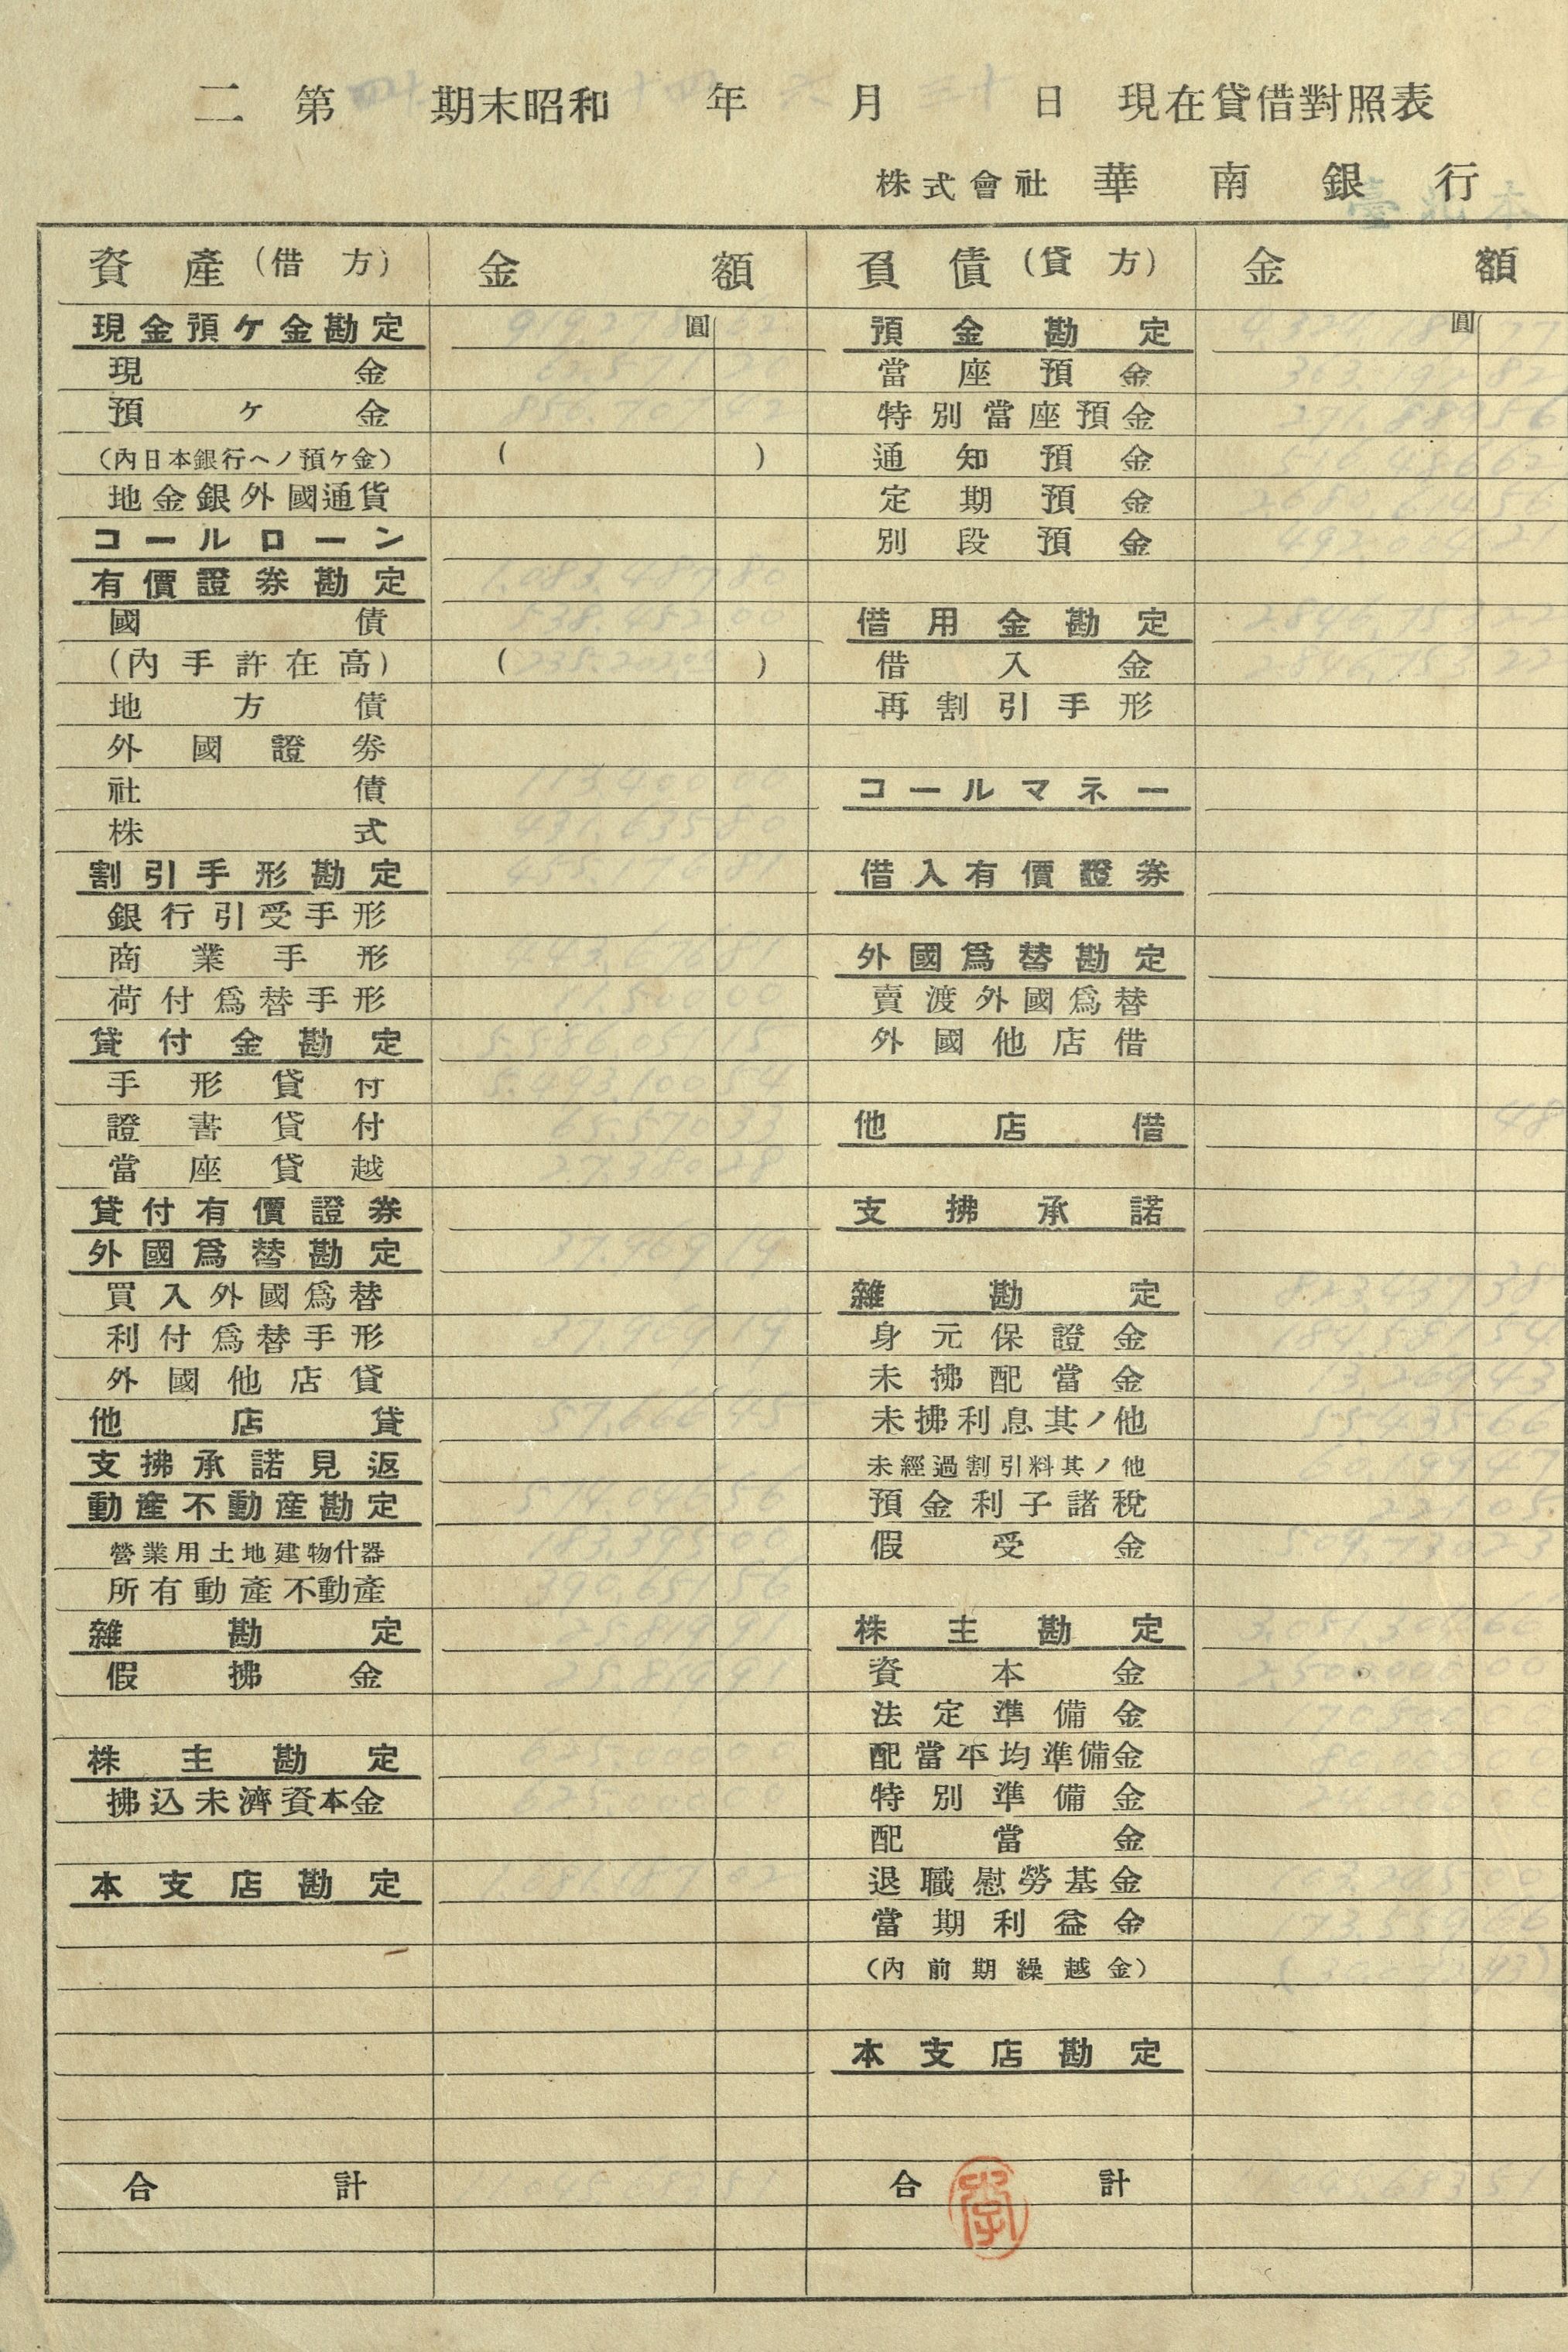 二 第四十 期末昭和十四年六月三十日 現在貸借對照表
株式會社 華南銀行
臺北本
資產(借方) 金額 負債(貸方) 金額
現金預ケ金勘定 圓 預金勘定 圓
現金 62,571 20 當座預金 363,192 82
預ケ金 856,707 42 特別當座預金 271,889 56
(內日本銀行ヘノ預ケ金) ( ) 通知預金 516,486 62
地金銀外國通貨 定期預金 2,680,614 56
コールローン 別段預金
有價證券勘定 1,083,487 80
國債 538,452 00 借用金勘定 2,846,753 22
(內手許在高) ( ) 借入金 2,846,753 22
地方債 再割引手形
外國證券
社債 113,400 00 コールマネー
株式 431,635 80
割引手形勘定 455,176 81 借入有價證券
銀行引受手形
商業手形 443,676 81 外國爲替勘定
荷付爲替手形 11,500 00 賣渡外國爲替
貸付金勘定 5,586,051 15 外國他店借
手形貸付 5,493,100 54
證書貸付 65,570 33 他店借 48
當座貸越 27,380 28
貸付有價證券 支拂承諾
外國爲替勘定 37,969 19
買入外國爲替 雜勘定 823,437 38
利付爲替手形 37,969 19 身元保證金 184,581 54
外國他店貸 未拂配當金 13,269 43
他店貸 57,666 45 未拂利息其ノ他 55,435 66
支拂承諾見返 未經過割引料其ノ他
動產不動產勘定 574,046 56 預金利子諸稅 221 05
營業用土地建物什器 183,395 00 假受金 509,730 23
所有動產不動產 390,651 56
雜勘定 25,819 91 株主勘定
假拂金 25,819 91 資本金 2,500,000 00
法定準備金
株主勘定 625,000 00 配當平均準備金
拂込未濟資本金 625,000 00 特別準備金
配當金
本支店勘定 1,681,187 02 退職慰勞基金
當期利益金
(內前期繰越金)
本支店勘定
合計 11,045,683 51 合計 11,045,683 51